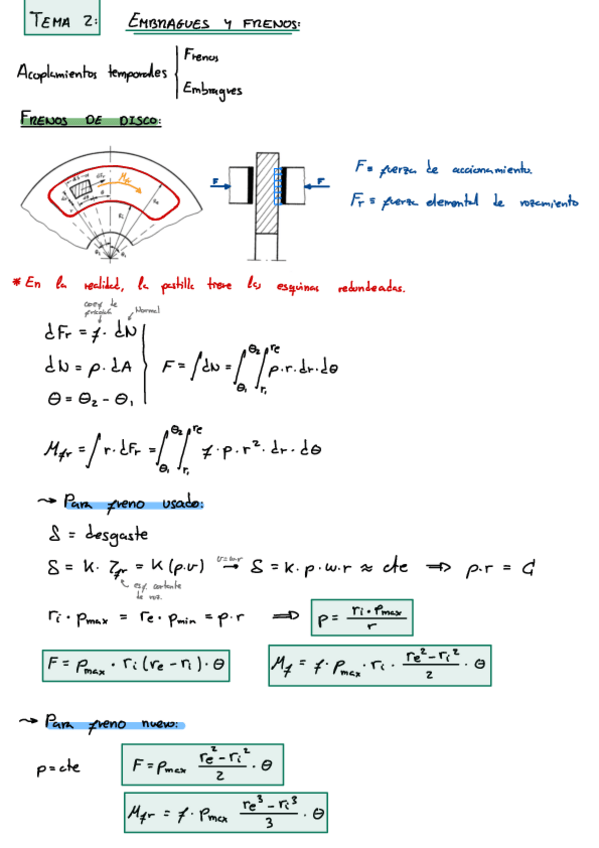 TEMA 2: EMBRAGUES Y FRENOS:
Acoplamientos temporales
Frenos
Embragues
FRENOS DE DISCO:
F F
F = fuerza de accionamiento.
Fr = fuerza elemental de rozamiento
* En la realidad, la pastilla tiene las esquinas redondeadas.
coef. de Normal
dFr = f · dN
dN = p · dA F = ∫dN = ∫θ₁^θ₂ ∫ri^re p·r·dr·dθ
θ = θ₂ - θ₁
Mfr = ∫r·dFr = ∫θ₁^θ₂ ∫ri^re f·p·r²·dr·dθ
→ Para freno usado:
δ = desgaste
δ = K · τfr = K(p·v) → δ = K·p·w·r ≈ cte ⇒ p·r = C
cortante
de roz.
ri · pmax = re · pmin = p·r ⇒ p = ri·pmax / r
F = pmax · ri (re - ri) · θ
Mf = f · pmax · ri · (re² - ri²)/2 · θ
→ Para freno nuevo:
p = cte F = pmax (re² - ri²)/2 · θ
Mfr = f · pmax (re³ - ri³)/3 · θ